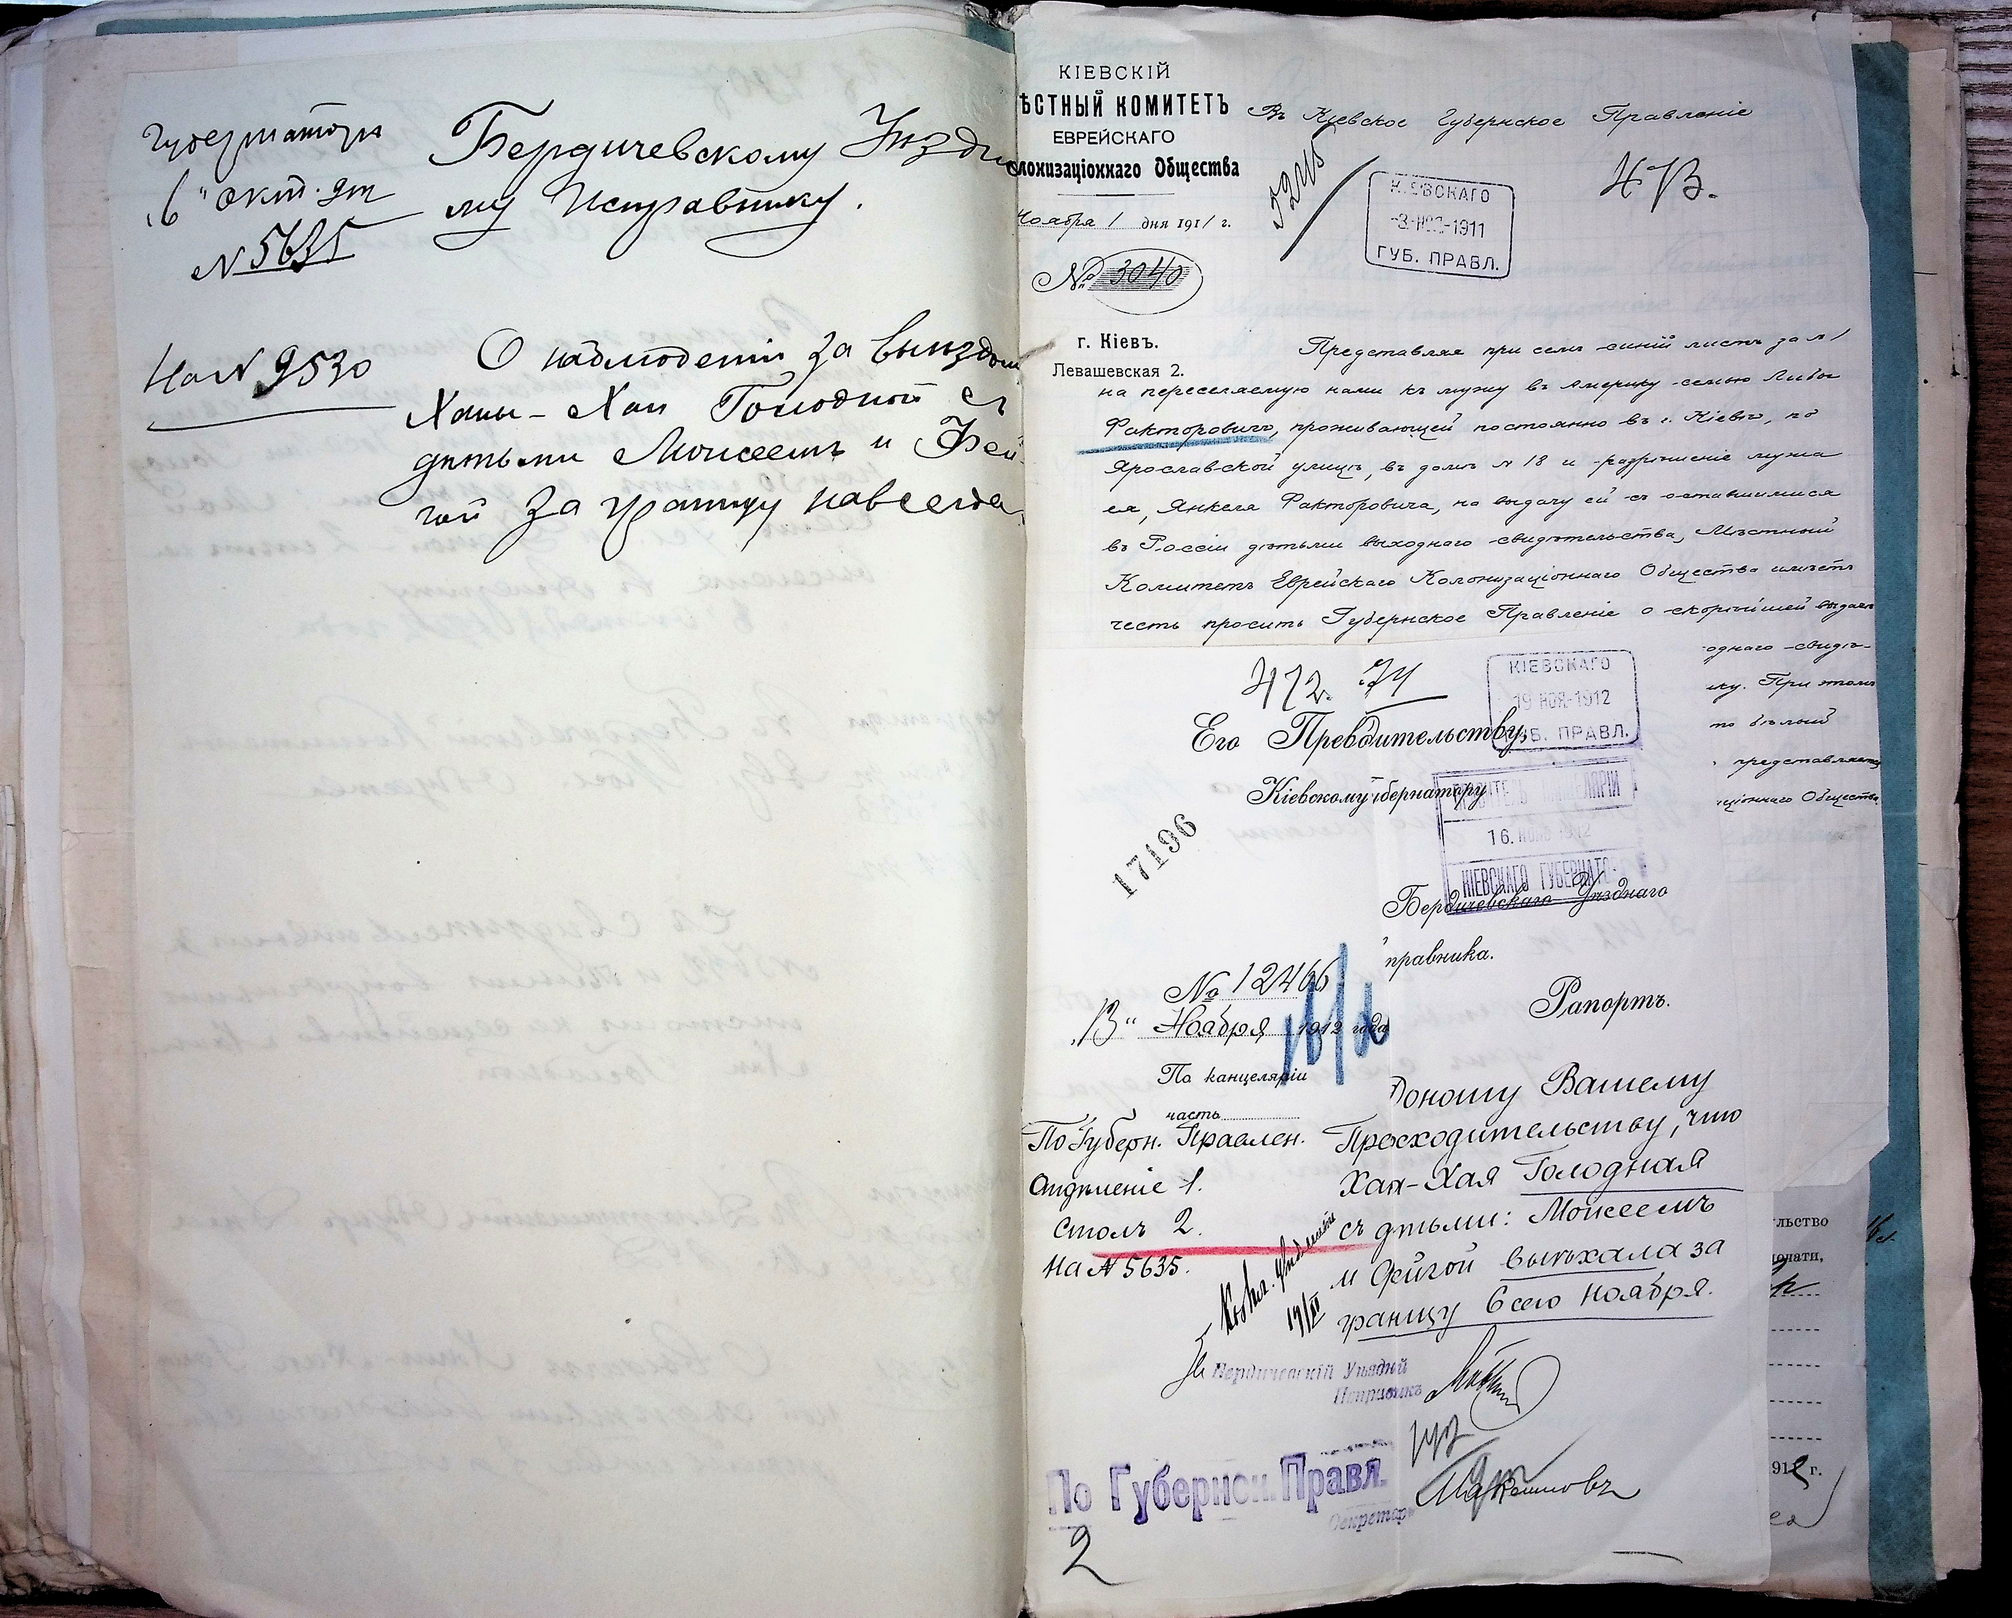 Губернатора
Бердичевскому Уѣздно
"6" окт. дт
му Исправнику.
№ 5635
На № 9530
О наблюденіи за выѣздом
Ханы-Хаи Голодной съ
дѣтьми Моисеемъ и Фей-
гой за границу навсегда.
КІЕВСКІЙ
ѢСТНЫЙ КОМИТЕТЪ
ЕВРЕЙСКАГО
лонизаціоннаго Общества
Ноября 1 дня 1911 г.
№ 3040
г. Кіевъ.
Левашевская 2.
Въ Кіевское Губернское Правленіе
КІЕВСКАГО
-3-НОЯ-1911
ГУБ. ПРАВЛ.
Представляя при семъ синій листъ за №
на переселяемую нами къ мужу въ Америку семью Либы
Факторовичъ, проживающей постоянно въ г. Кіевѣ, по
Ярославской улицѣ, въ домѣ № 18 и разрѣшеніе мужа
ея, Янкеля Факторовича, на выдачу ей съ оставшимися
въ Россіи дѣтьми выходного свидѣтельства, Мѣстный
Комитетъ Еврейскаго Колонизаціоннаго Общества имѣетъ
честь просить Губернское Правленіе о скорѣйшей выдачѣ
однаго свидѣ-
ку. При этомъ
то бѣлый
представляетъ
ціоннаго Общества
КІЕВСКАГО
19 НОЯ-1912
ГУБ. ПРАВЛ.
Его Превдительству,
Кіевскому Губернатору
16. НОЯБ 1912
КІЕВСКАГО ГУБЕРНАТО
17196
Бердичевскаго Уѣзднаго
правника.
Рапортъ.
№ 12466
"13" Ноября 1912 года
По канцеляріи
часть
По Губерн. Правлен.
Отдѣленіе 1.
Столъ 2.
На № 5635.
Доношу Вашему
Превосходительству, что
Хая-Хая Голодная
съ дѣтьми: Моисеемъ
и Фейгой выѣхала за
границу 6 сего Ноября.
Бердичевскій Уѣздный
Исправникъ
По Губернск. Правл.
Секретарь
2
льство
1912 г.